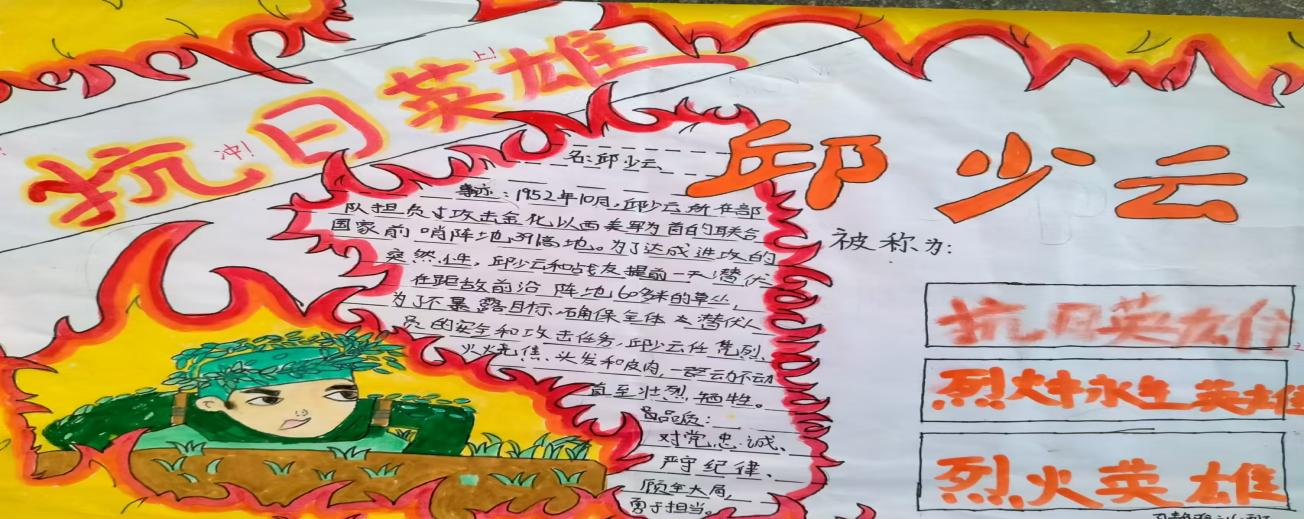 抗日英雄
上!
冲!
邱少云
被称为:
名:邱少云
事迹:1952年10月,邱少云所在部
队担负了攻击金化以西美军为首的联合
国家前哨阵地391高地。为了达成进攻的
突然性,邱少云和战友提前一天潜伏
在距敌前沿阵地60多米的草丛,
为了不暴露目标,确保全体 潜伏人
员的安全和攻击任务,邱少云任凭烈
火烧焦头发和皮肉,一 动不动
直至壮烈牺牲。
品质:
对党忠诚、
严守纪律、
顾全大局,
勇于担当。
抗日英雄
烈火中永生英雄
烈火英雄